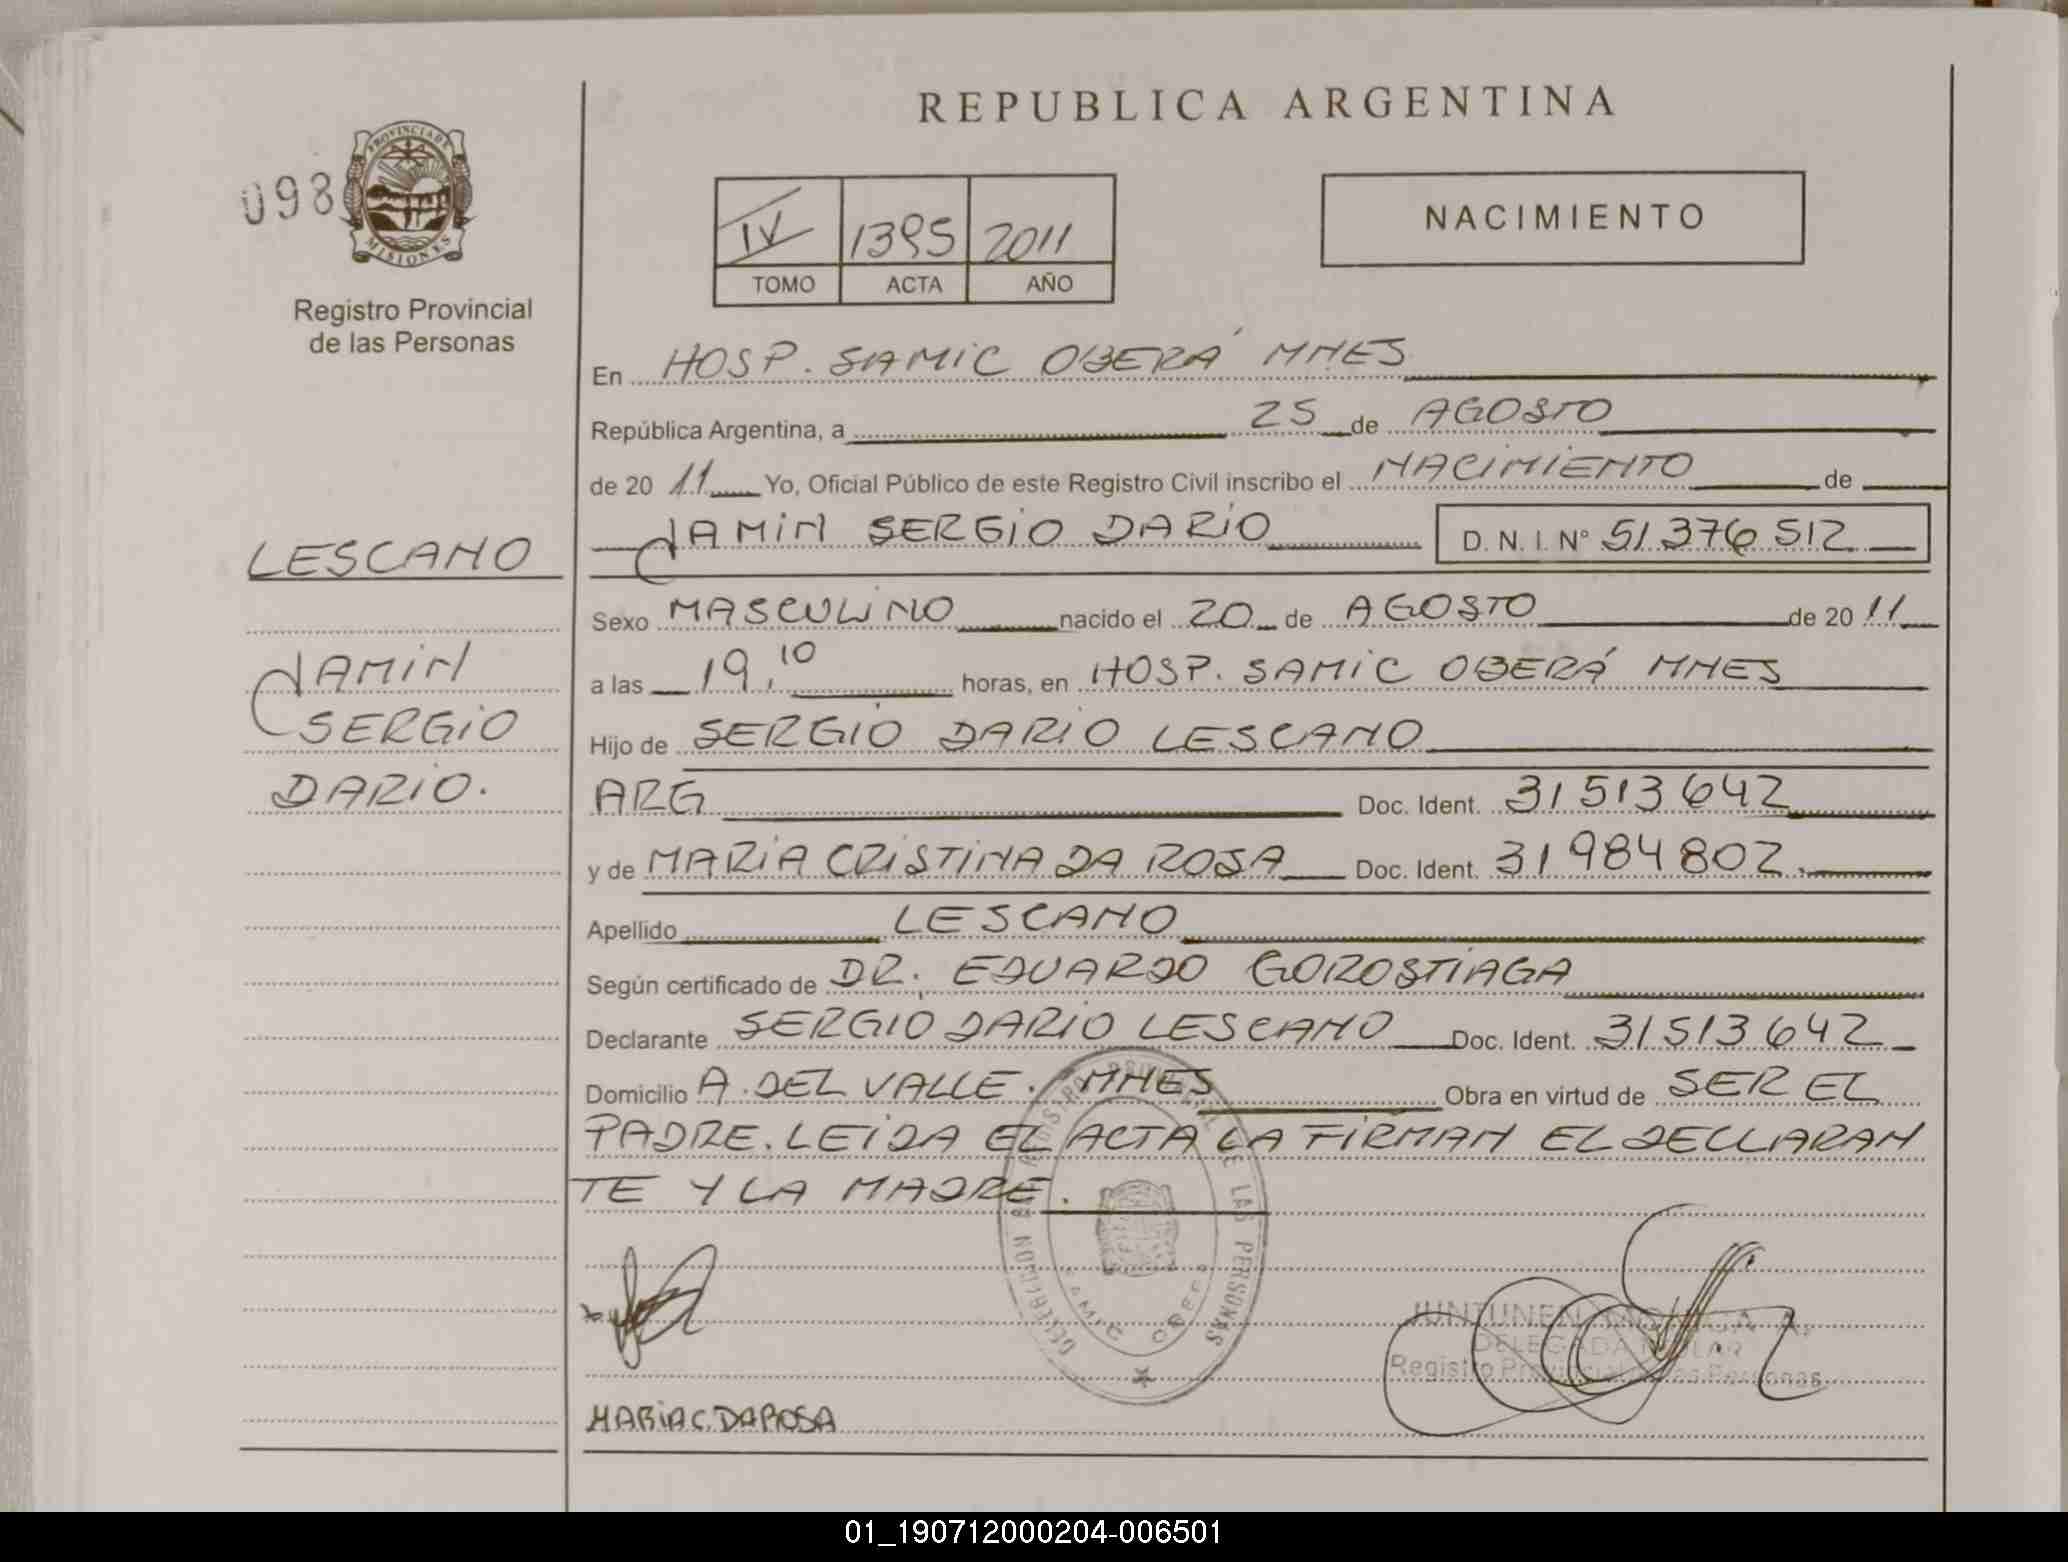 REPUBLICA ARGENTINA
098
PROVINCIA DE
MISIONES
Registro Provincial
de las Personas
IV 1395 2011
TOMO ACTA AÑO
NACIMIENTO
En HOSP. SAMIC OBERÁ MNES
República Argentina, a 25 de AGOSTO
de 20 11 Yo, Oficial Público de este Registro Civil inscribo el NACIMIENTO de
JAMIN SERGIO DARIO D. N. I. N° 51.376.512
LESCANO
JAMIN
SERGIO
DARIO.
Sexo MASCULINO nacido el 20 de AGOSTO de 20 11
a las 19:10 horas, en HOSP. SAMIC OBERÁ MNES
Hijo de SERGIO DARIO LESCANO
ARG Doc. Ident. 31 513 642
y de MARIA CRISTINA DA ROSA Doc. Ident. 31 984 802.
Apellido LESCANO
Según certificado de DR. EDUARDO GOROSTIAGA
Declarante SERGIO DARIO LESCANO Doc. Ident. 31 513 642
Domicilio A. DEL VALLE. MNES Obra en virtud de SER EL
PADRE. LEIDA EL ACTA LA FIRMAN EL DECLARAN
TE Y LA MADRE.
DE LAS PERSONAS
JUNTUNEN
DELEGADA
Registro Provincial de las Personas
MARIA C. DA ROSA
01_190712000204-006501